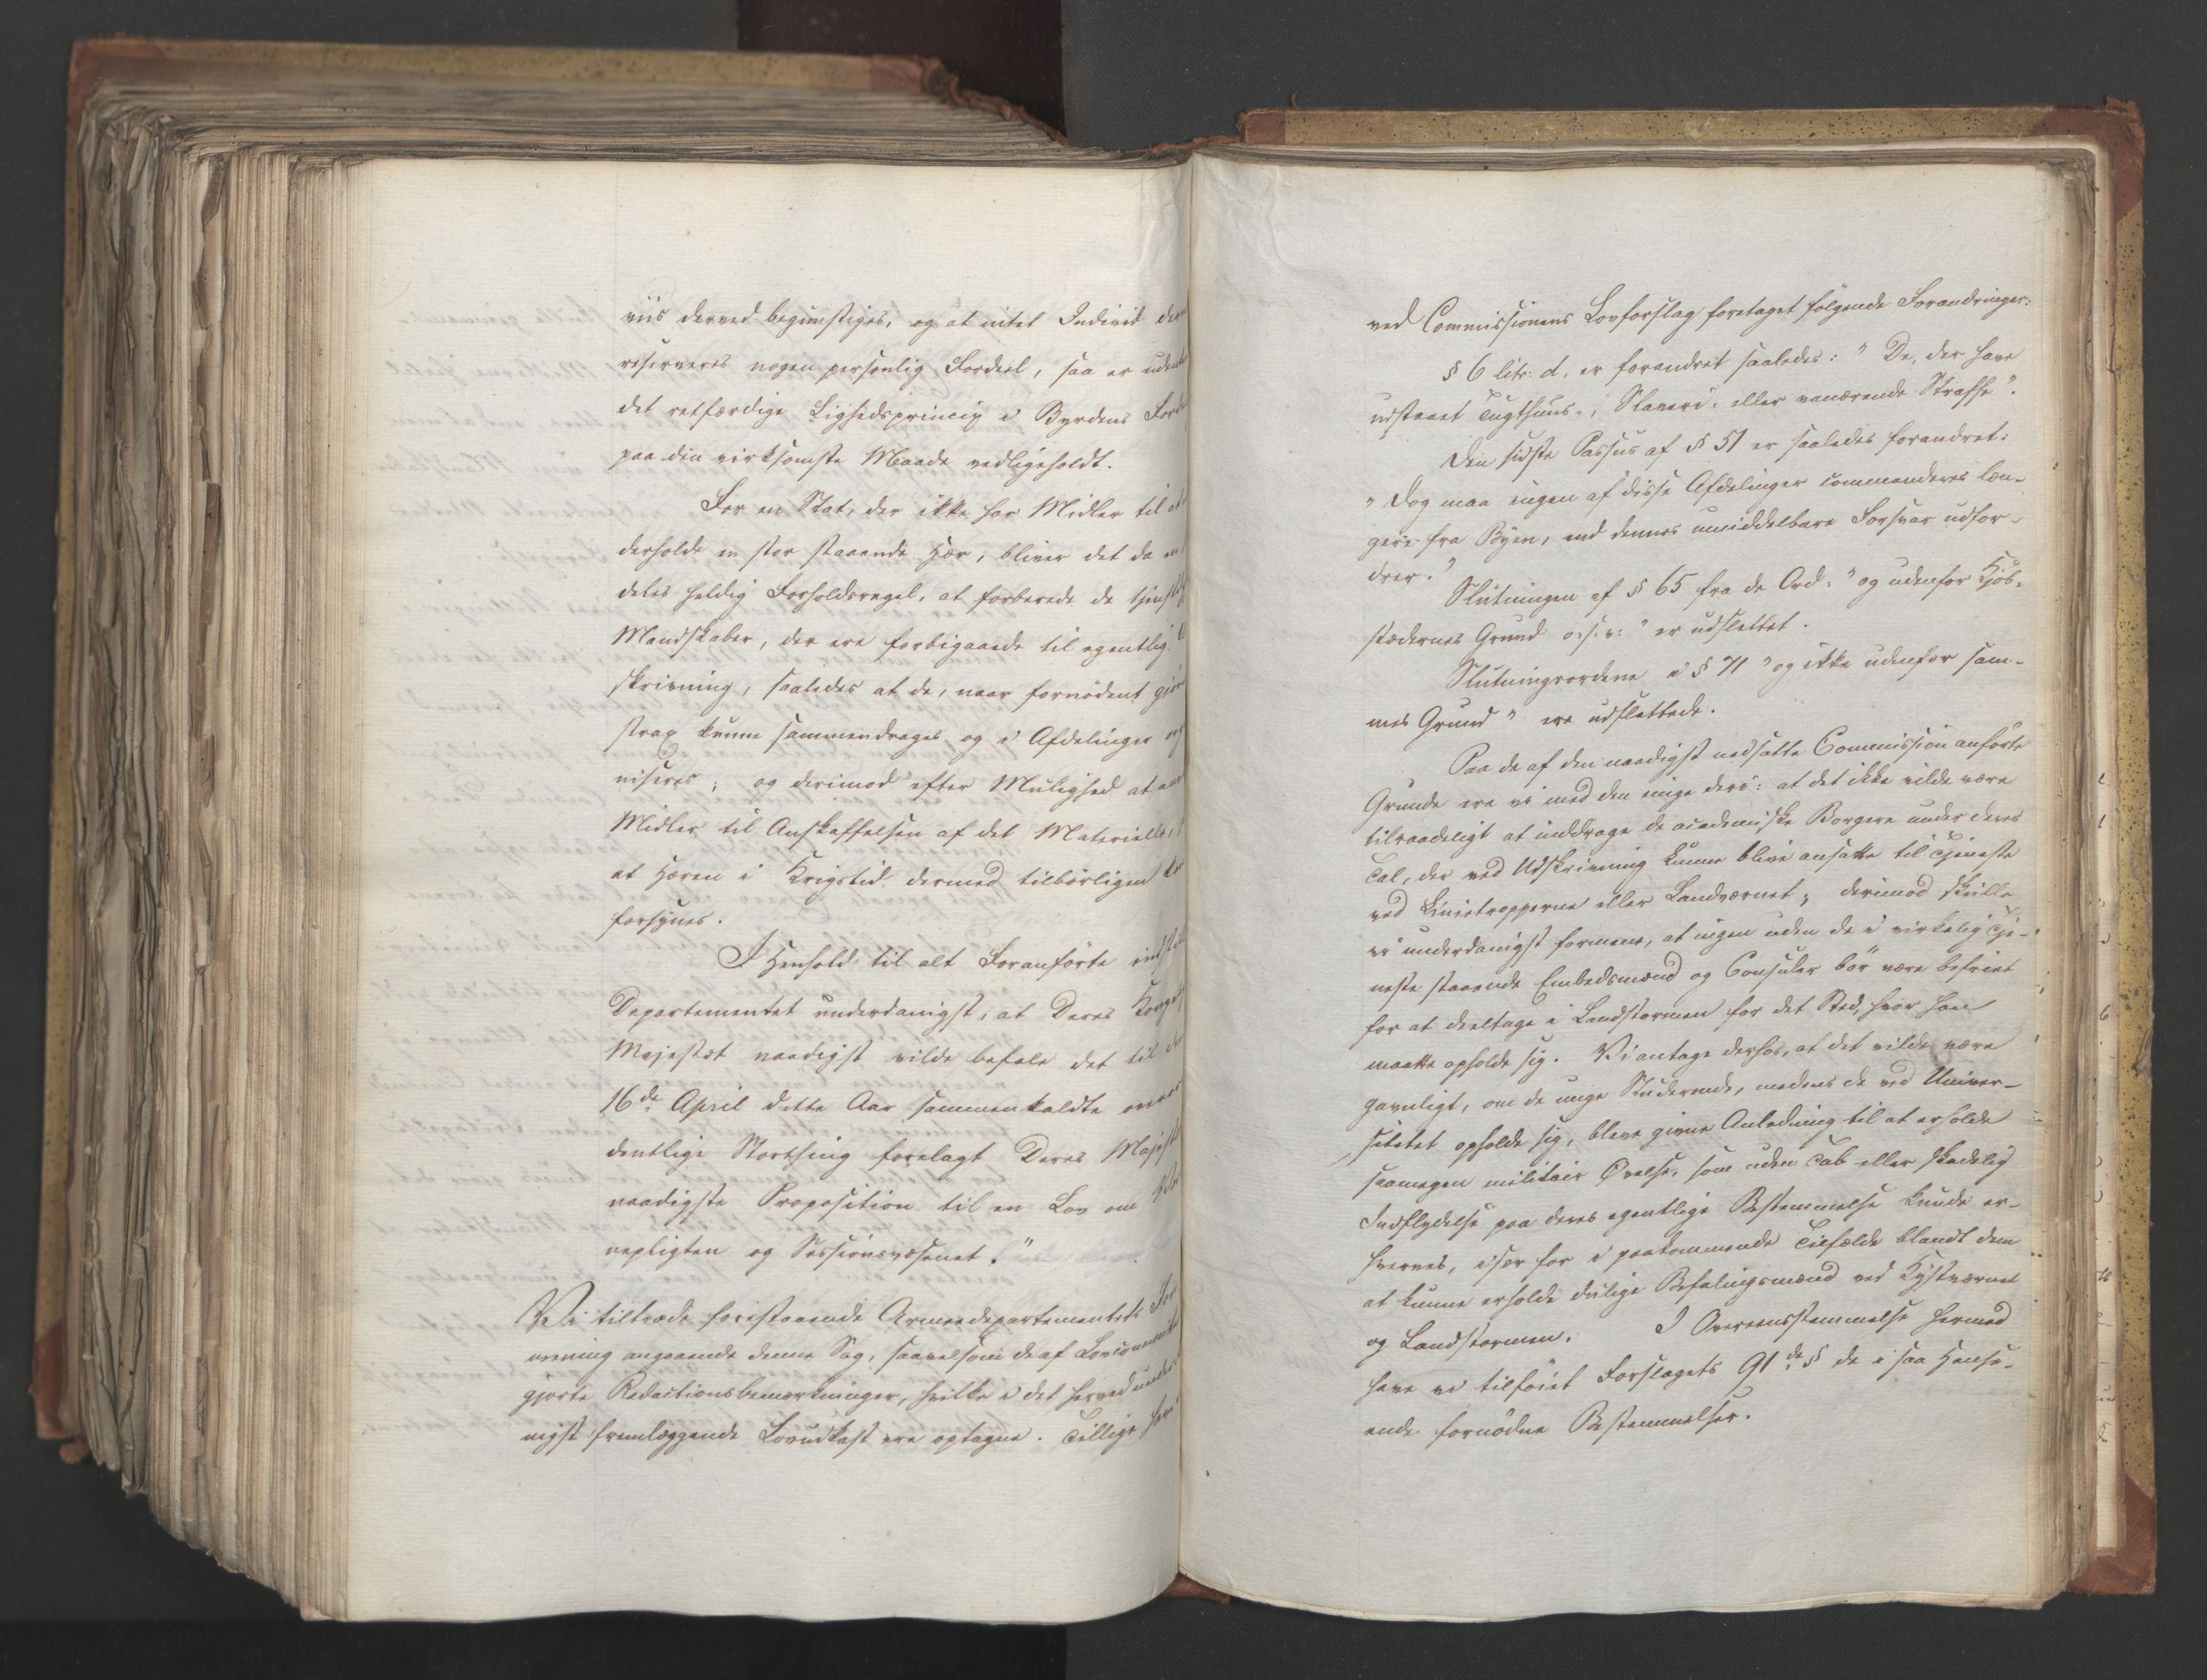 viis derved begunstiges, og at intet Individ der
reserveres nogen personlig Fordeel, saa er uden
det retfærdige Lighedsprincip i Byrdens For
paa den virksomste Maade vedligeholdt.
For en Stat, der ikke har Midler til at
derholde en stor staaende Hær, bliver det da en
deles heldig Forholdsregel, at forberede de tjenst
Mandskaber, der ere forbigaaede til egentlig U
skrivning, saaledes at de, naar fornødent gjør
strax kunne sammendrages og i Afdelinger or
niseres; og derimod efter Mulighed at an
Midler til Anskaffelsen af det Materielle,
at Hæren i Krigstid dermed tilbörligen k
forsynes.
I Henhold til alt Foranförte indst
Departementet underdanigst, at Deres Konge
Majestæt naadigst vilde befale det til d
16de April dette Aar sammenkaldte over
dentlige Storthing forelagt Deres Majest
naadigste Proposition til en Lov om Vær
nepligten og Sessionsvæsenet."
Vi tiltræde forestaaende Armeedepartementets For
mening angaaende denne Sag, saavelsom de af Lovcommi
gjorte Redactionsbemærkninger, hvilke i det herved under
nigst fremlæggende Lovudkast ere optagne. Tillige have
ved Commissionens Lovforslag foretaget fölgende Forandringer:
§ 6 litr: d. er forandret saaledes: "De, der have
udstaaet Tugthuus-, Slaveri- eller vanærende Straffe".
Den sidste Passus af § 51 er saaledes forandret:
"Dog maa ingen af disse Afdelinger commanderes læn-
gere fra Byen, end dennes umiddelbare Forsvar udfor-
drer."
Slutningen af § 65 fra de Ord: "og udenfor Kjöb-
stædernes Grund o: s: v:" er udslettet.
Slutningsordene i § 71 "og ikke udenfor sam-
mes Grund" ere udslettede.
Paa de af den naadigst nedsatte Commission anförte
Grunde ere vi med den enige deri: at det ikke vilde være
tilraadeligt at inddrage de academiske Borgere under deres
Tal, der ved Udskrivning kunne blive ansatte til Tjeneste
ved Linietropperne eller Landværnet; derimod skulle
vi underdanigst formene, at ingen uden de i virkelig Tje-
neste staaende Embedsmænd og Consuler bör være befriet
for at deeltage i Landstormen for det Sted, hvor han
maatte opholde sig. Vi antage derhos, at det vilde være
gavnligt, om de unge Studerende, medens de ved Univer-
sitetet opholde sig, bleve givne Anledning til at erholde
saamegen militair Øvelse, som uden Tab eller skadelig
Indflydelse paa deres egentlige Bestemmelse kunde er-
hverves, især for i paakommende Tilfælde blandt dem
at kunne erholde duelige Befalingsmænd ved Kystværnet
og Landstormen. I Overeensstemmelse hermed
have vi tilföiet Forslagets 91de § de i saa Hense-
ende fornödne Bestemmelser.